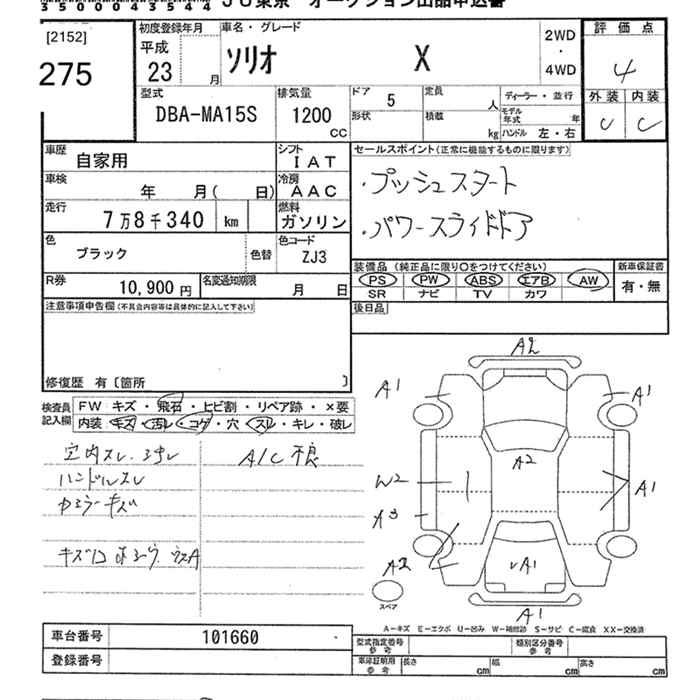 350004354 4 JU東京 オークション出品申込書
[2152]
275
初度登録年月
平成
23 月
車名・グレード
ソリオ X
2WD
・
4WD
評価点
4
外装 内装
C C
型式
DBA-MA15S
排気量
1200
CC
ドア 5
形状
定員 人
積載 kg
ディーラー・並行
モデル年式 年
ハンドル 左・右
車歴
自家用
シフト
IAT
車検
年 月( 日)
冷房
AAC
走行
7万8千340 km
燃料
ガソリン
色
ブラック
色替
色コード
ZJ3
R券
10,900円
名変通知期限
月 日
セールスポイント(正常に機能するものに限ります)
・プッシュスタート
・パワースライドドア
装備品(純正品に限り○をつけてください)
PS PW ABS エアB AW
SR ナビ TV カワ
新車保証書
有・無
後日品
注意事項申告欄(不具合内容等は具体的に記入して下さい)
修復歴 有〔箇所 〕
検査員
記入欄
FW キズ・飛石・ヒビ割・リペア跡・×要
内装 キズ・汚レ・コゲ・穴・スレ・キレ・破レ
室内スレ・ヨゴレ
ハンドルスレ
キズ
A/C 不良
A2
A1
A1
A2
W2
A1
A3
A2
A1
A1
スペア
A-キズ E-エクボ U-凹み W-補修跡 S-サビ C-腐食 XX-交換済
車台番号 101660
登録番号
型式指定番号
参考
類別区分番号
参考
車庫証明用
参考
長さ cm
幅 cm
高さ cm